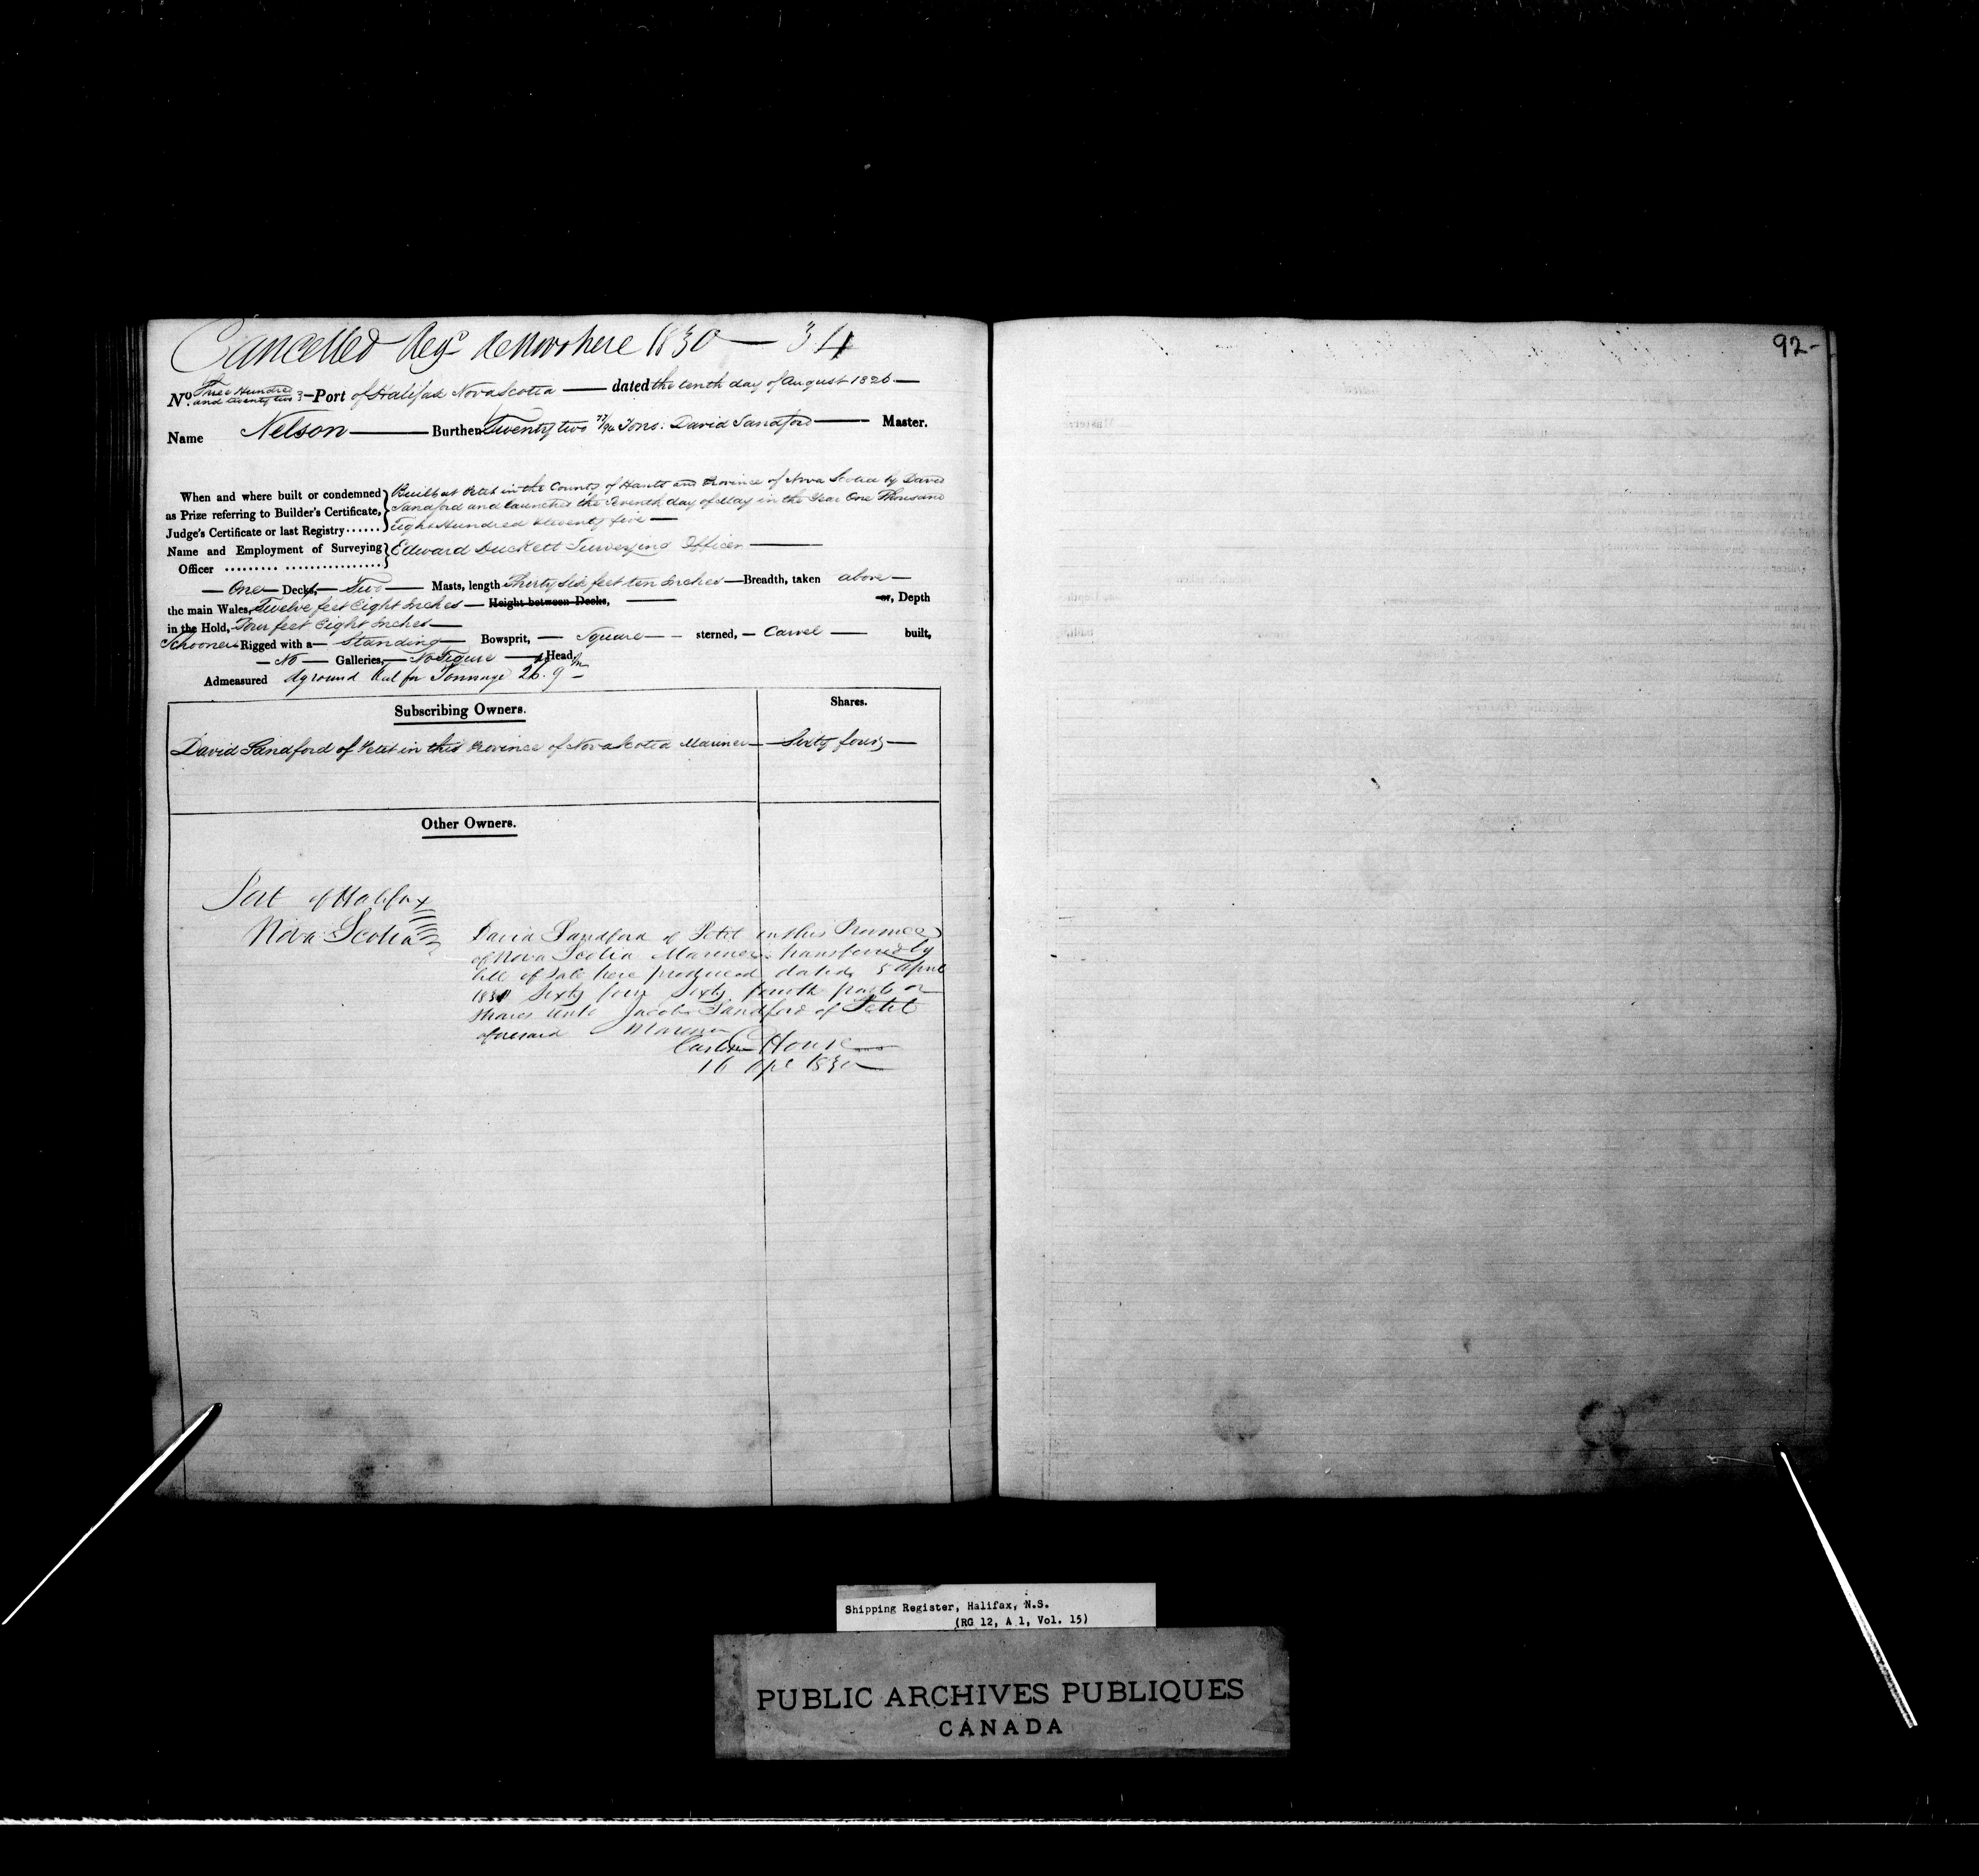 Cancelled Reg.d de Novo here 1830 — 34
92-
No. Three Hundred and twenty two — Port of Halifax Nova Scotia — dated the tenth day of August 1826 —
Name Nelson — Burthen Twenty two 77/94 Tons: David Sandford — Master.
When and where built or condemned as Prize referring to Builder's Certificate, Judge's Certificate or last Registry ......
Built at Petit in the County of Hants and Province of Nova Scotia by David
Sandford and launched the Seventh day of May in the Year One Thousand
Eight Hundred twenty five —
Name and Employment of Surveying Officer ......... ................. Edward Duckett Surveying Officer —
— One — Decks, — Two — Masts, length Thirty Six feet ten Inches — Breadth, taken above —
the main Wales, Twelve feet Eight Inches — Height between Decks, — or, Depth
in the Hold, Four feet Eight Inches —
Schooner Rigged with a — Standing — Bowsprit, — Square — sterned, — Carvel — built,
— No — Galleries, — No Figure — Head
Admeasured aground Keel for Tonnage 26.9 —
Subscribing Owners. Shares.
David Sandford of Petit in this Province of Nova Scotia Mariner — Sixty four —
Other Owners.
Port of Halifax
Nova Scotia
David Sandford of Petit in this Province
of Nova Scotia Mariner transferred by
bill of Sale here produced dated 5 April
1830 Sixty four Sixty fourth parts or
shares unto Jacob Sandford of Petit
aforesaid Mariner
Custom House —
16 Apl 1830 —
Shipping Register, Halifax, N.S.
(RG 12, A 1, Vol. 15)
PUBLIC ARCHIVES PUBLIQUES
CANADA